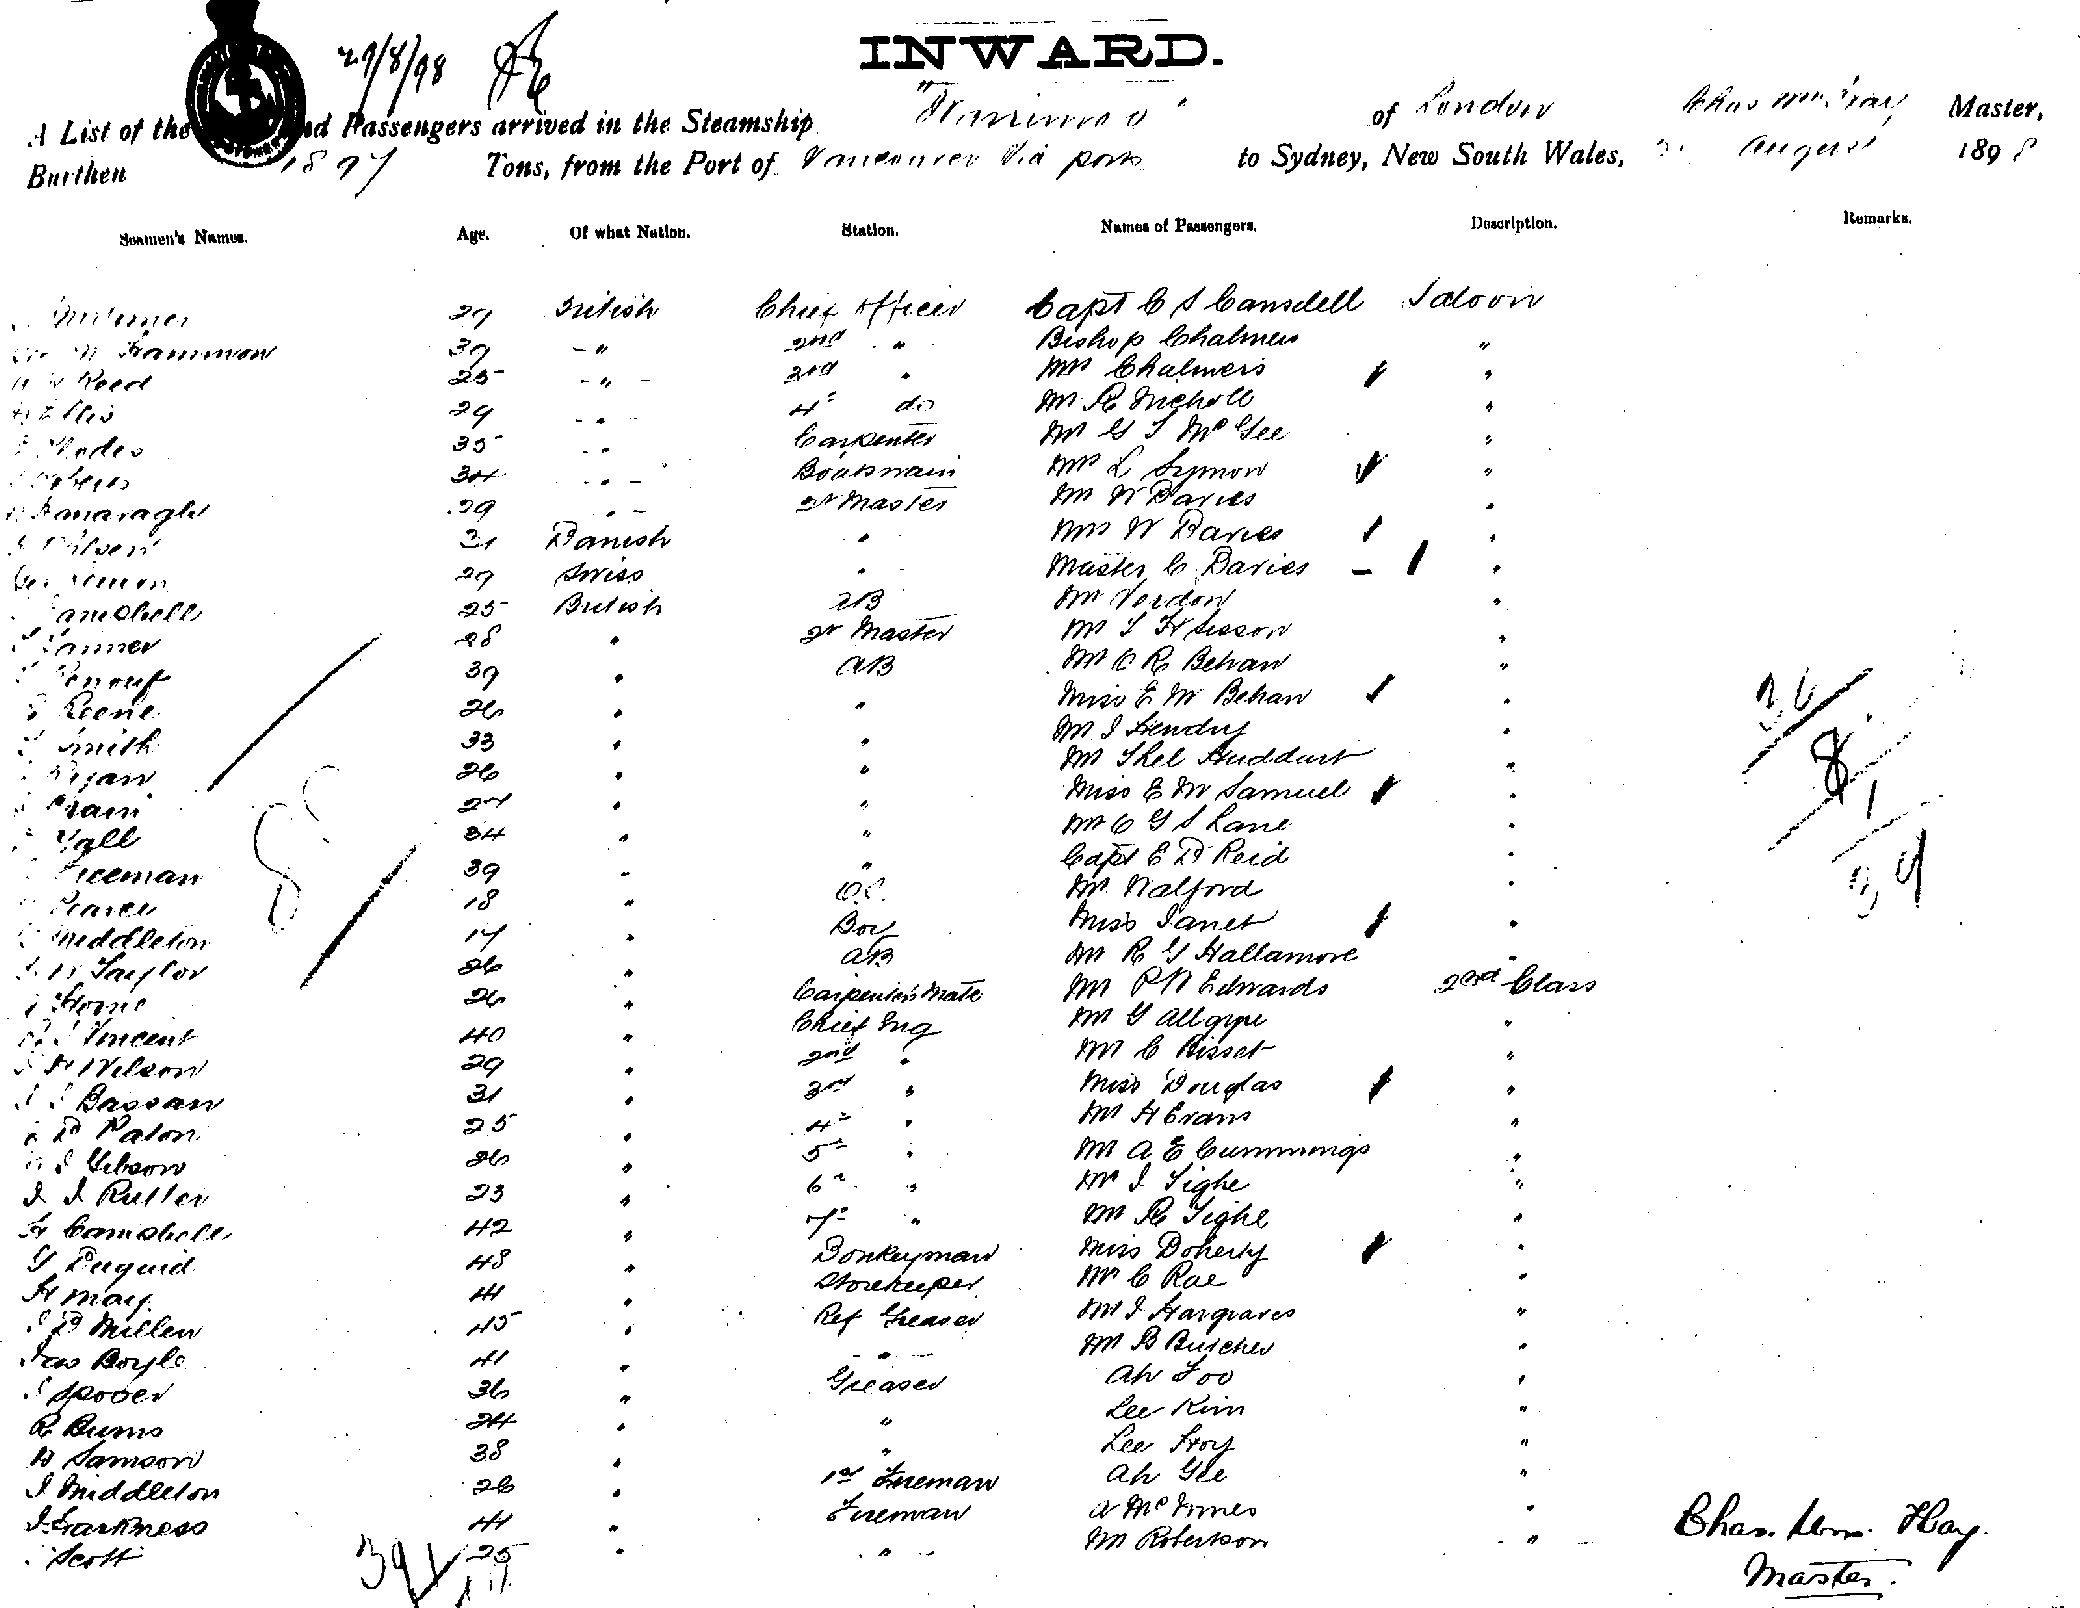 29/8/98
INWARD.
A List of the nd Passengers arrived in the Steamship "Warrimoo" of London Chas Wm Hay Master,
Burthen 1897 Tons, from the Port of Vancouver Via ports to Sydney, New South Wales, August 1898
Seamen's Names. Age. Of what Nation. Station. Names of Passengers. Description. Remarks.
29 British Chief Officer Capt C S Cansdell Saloon
Hammon 39 -"- 2nd " Bishop Chalmers "
Reed 25 -"- 3rd " Mrs Chalmers "
Ellis 29 -"- 4th do Mr R Nicholl "
Rhodes 35 -"- Carpenter Mr G S McGee "
34 -"- Boatswain Mrs L Symon "
Kanaragh 29 " - Qr Master Mr W Davies "
31 Danish " Mrs W Davies "
29 Swiss " Master C Davies - "
Campbell 25 British AB Mr Verdon "
Tanner 28 " Qr Master Mr S H Sisson "
Renouf 39 " AB Mr C R Behan "
Keene 26 " " Miss E M Behan "
Smith 33 " " Mr J Hendry "
Ryan 26 " " Mr Shel Huddart "
27 " " Miss E M Samuel "
Gall 34 " " Mr C G S Lane "
Freeman 39 " " Capt E D Reid "
Pearce 18 " O.S. Mr Walford "
Middleton 17 " Boy Miss Janet "
W Taylor 26 " AB Mr R G Hallamore "
Horne 26 " Carpenters Mate Mr P W Edwards 2nd Class
Vincent 40 " Chief Eng Mr G Allgype "
H Wilson 29 " 2nd " Mr C Bisset "
Bassan 31 " 3rd " Miss Douglas "
D Paton 25 " 4th " Mr H Evans "
J Gibson 26 " 5th " Mr A E Cummings "
J J Rutter 23 " 6th " Mr J Tighe "
H Campbell 42 " 7th " Mr R Tighe "
G Duguid 48 " Donkeyman Miss Doherty "
H May 41 " Storekeeper Mr C Rae "
D Millen 45 " Ref Greaser Mr J Hargraves "
Jas Boyle 41 " " Mr B Butcher "
Spooer 36 " Greaser Ah Foo "
R Burns 24 " " Lee Kim "
Samson 38 " " Lee Hoy "
J Middleton 26 " 1st Fireman Ah Gee "
J Harkness 41 " Fireman A McInnes "
Scott 25 " " M Robertson "
39
Chas. Wm. Hay.
Master.